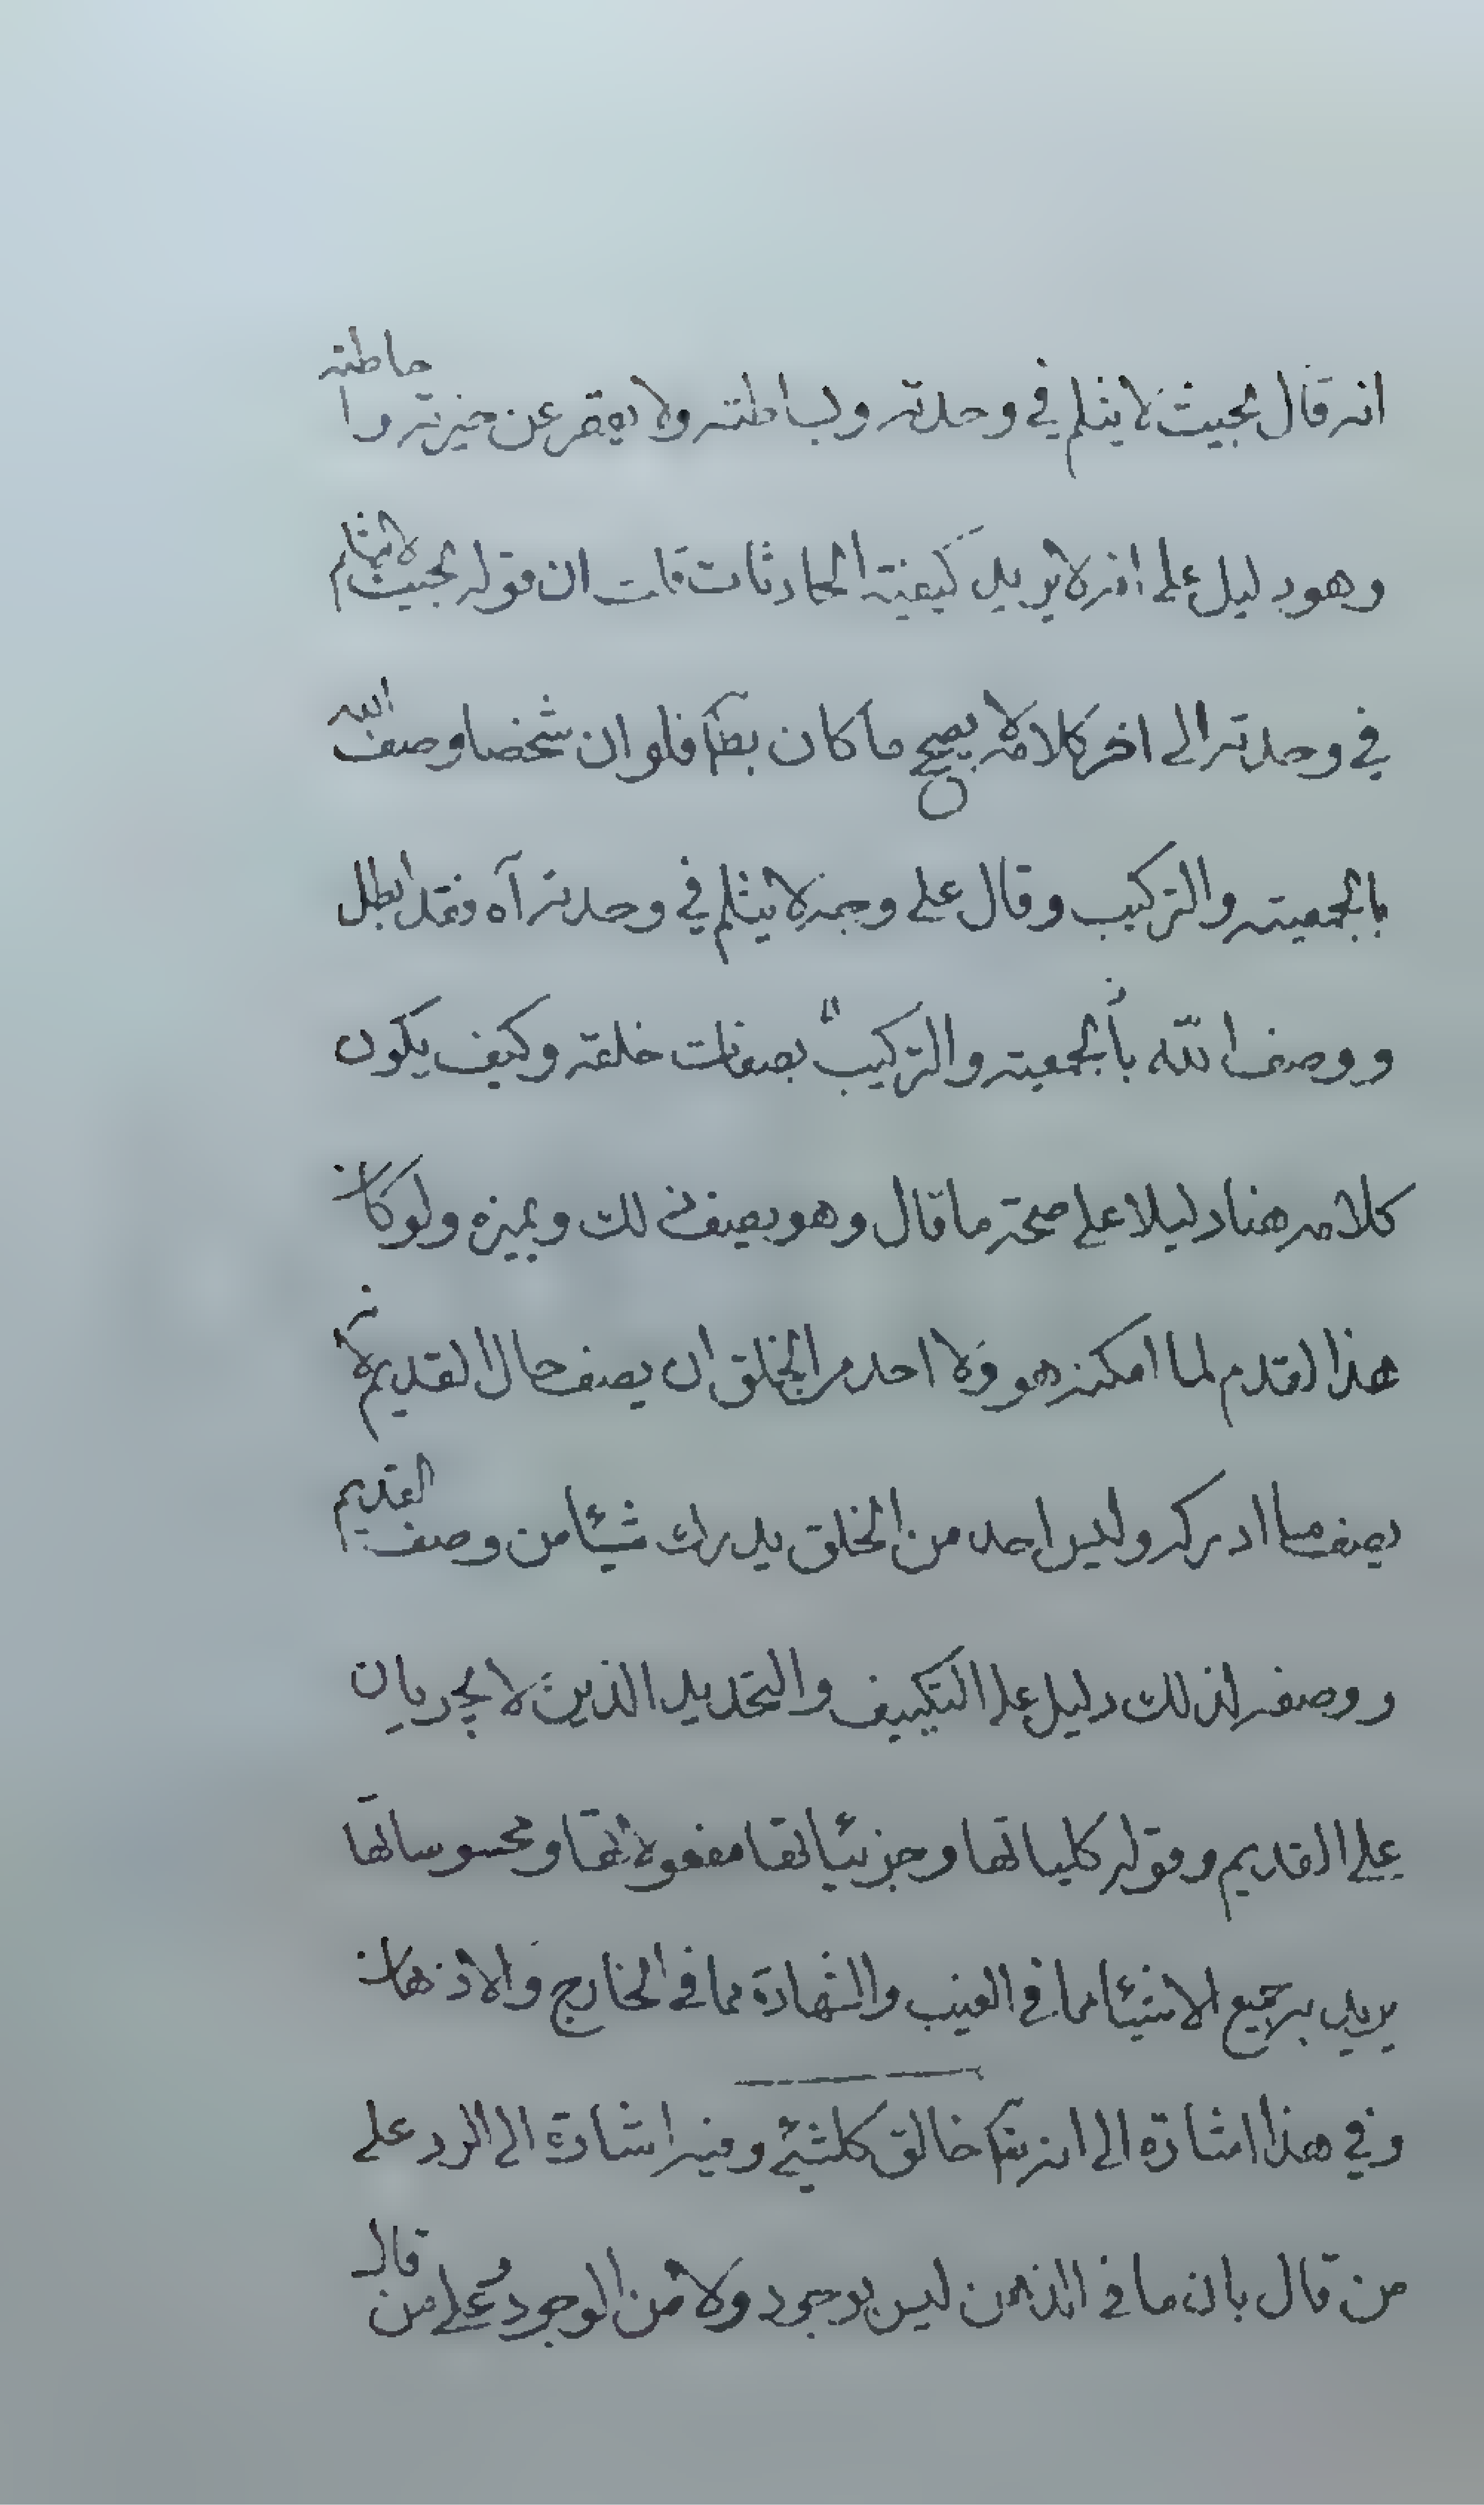 انه قال بحيث لا ينثلم في وحدته وبساطته ولا يفقر عن خيرته واحاطته
وهو دليل على انه لا يريد كيفية الحادثات قلت ان قوله بحيث لا ينثلم
في وحدته الى اخر كلامه لا يصحح ما كان بط فلو ان شخصا وصف الله
بالجمعيته والتركيب وقال على وجه لا ينثلم في وحدته آه فقد ابطل
ووصف الله بالجمعيته والتركيب بصفات خلقه وكيف يكون
كلامه هنا دليلا على صحة ما قال وهو يصف ذلك ويميزه ولو كان
هذا القدم لما امكنه هو ولا احد من الخلق ان يصف حال القديم لانه
يصف ما ادركه وليس احد من الخلق يدرك شيئا من وصف القديم
ووصفه لذلك دليل على التكييف والتحديد الذين لا يجريان
على القديم وقوله كلياتها وجزئياتها معقولاتها ومحسوساتها
يريد به جميع الاشيئا مما في الغيب والشهادة مما في الخارج والاذهان
وفي هذا اشارة الى انه تعا خالق كلشئ وفيه اشارة الى الرد على
من قال بان ما في الذهن ليس بوجود ولا من الوجود وعلى من قال